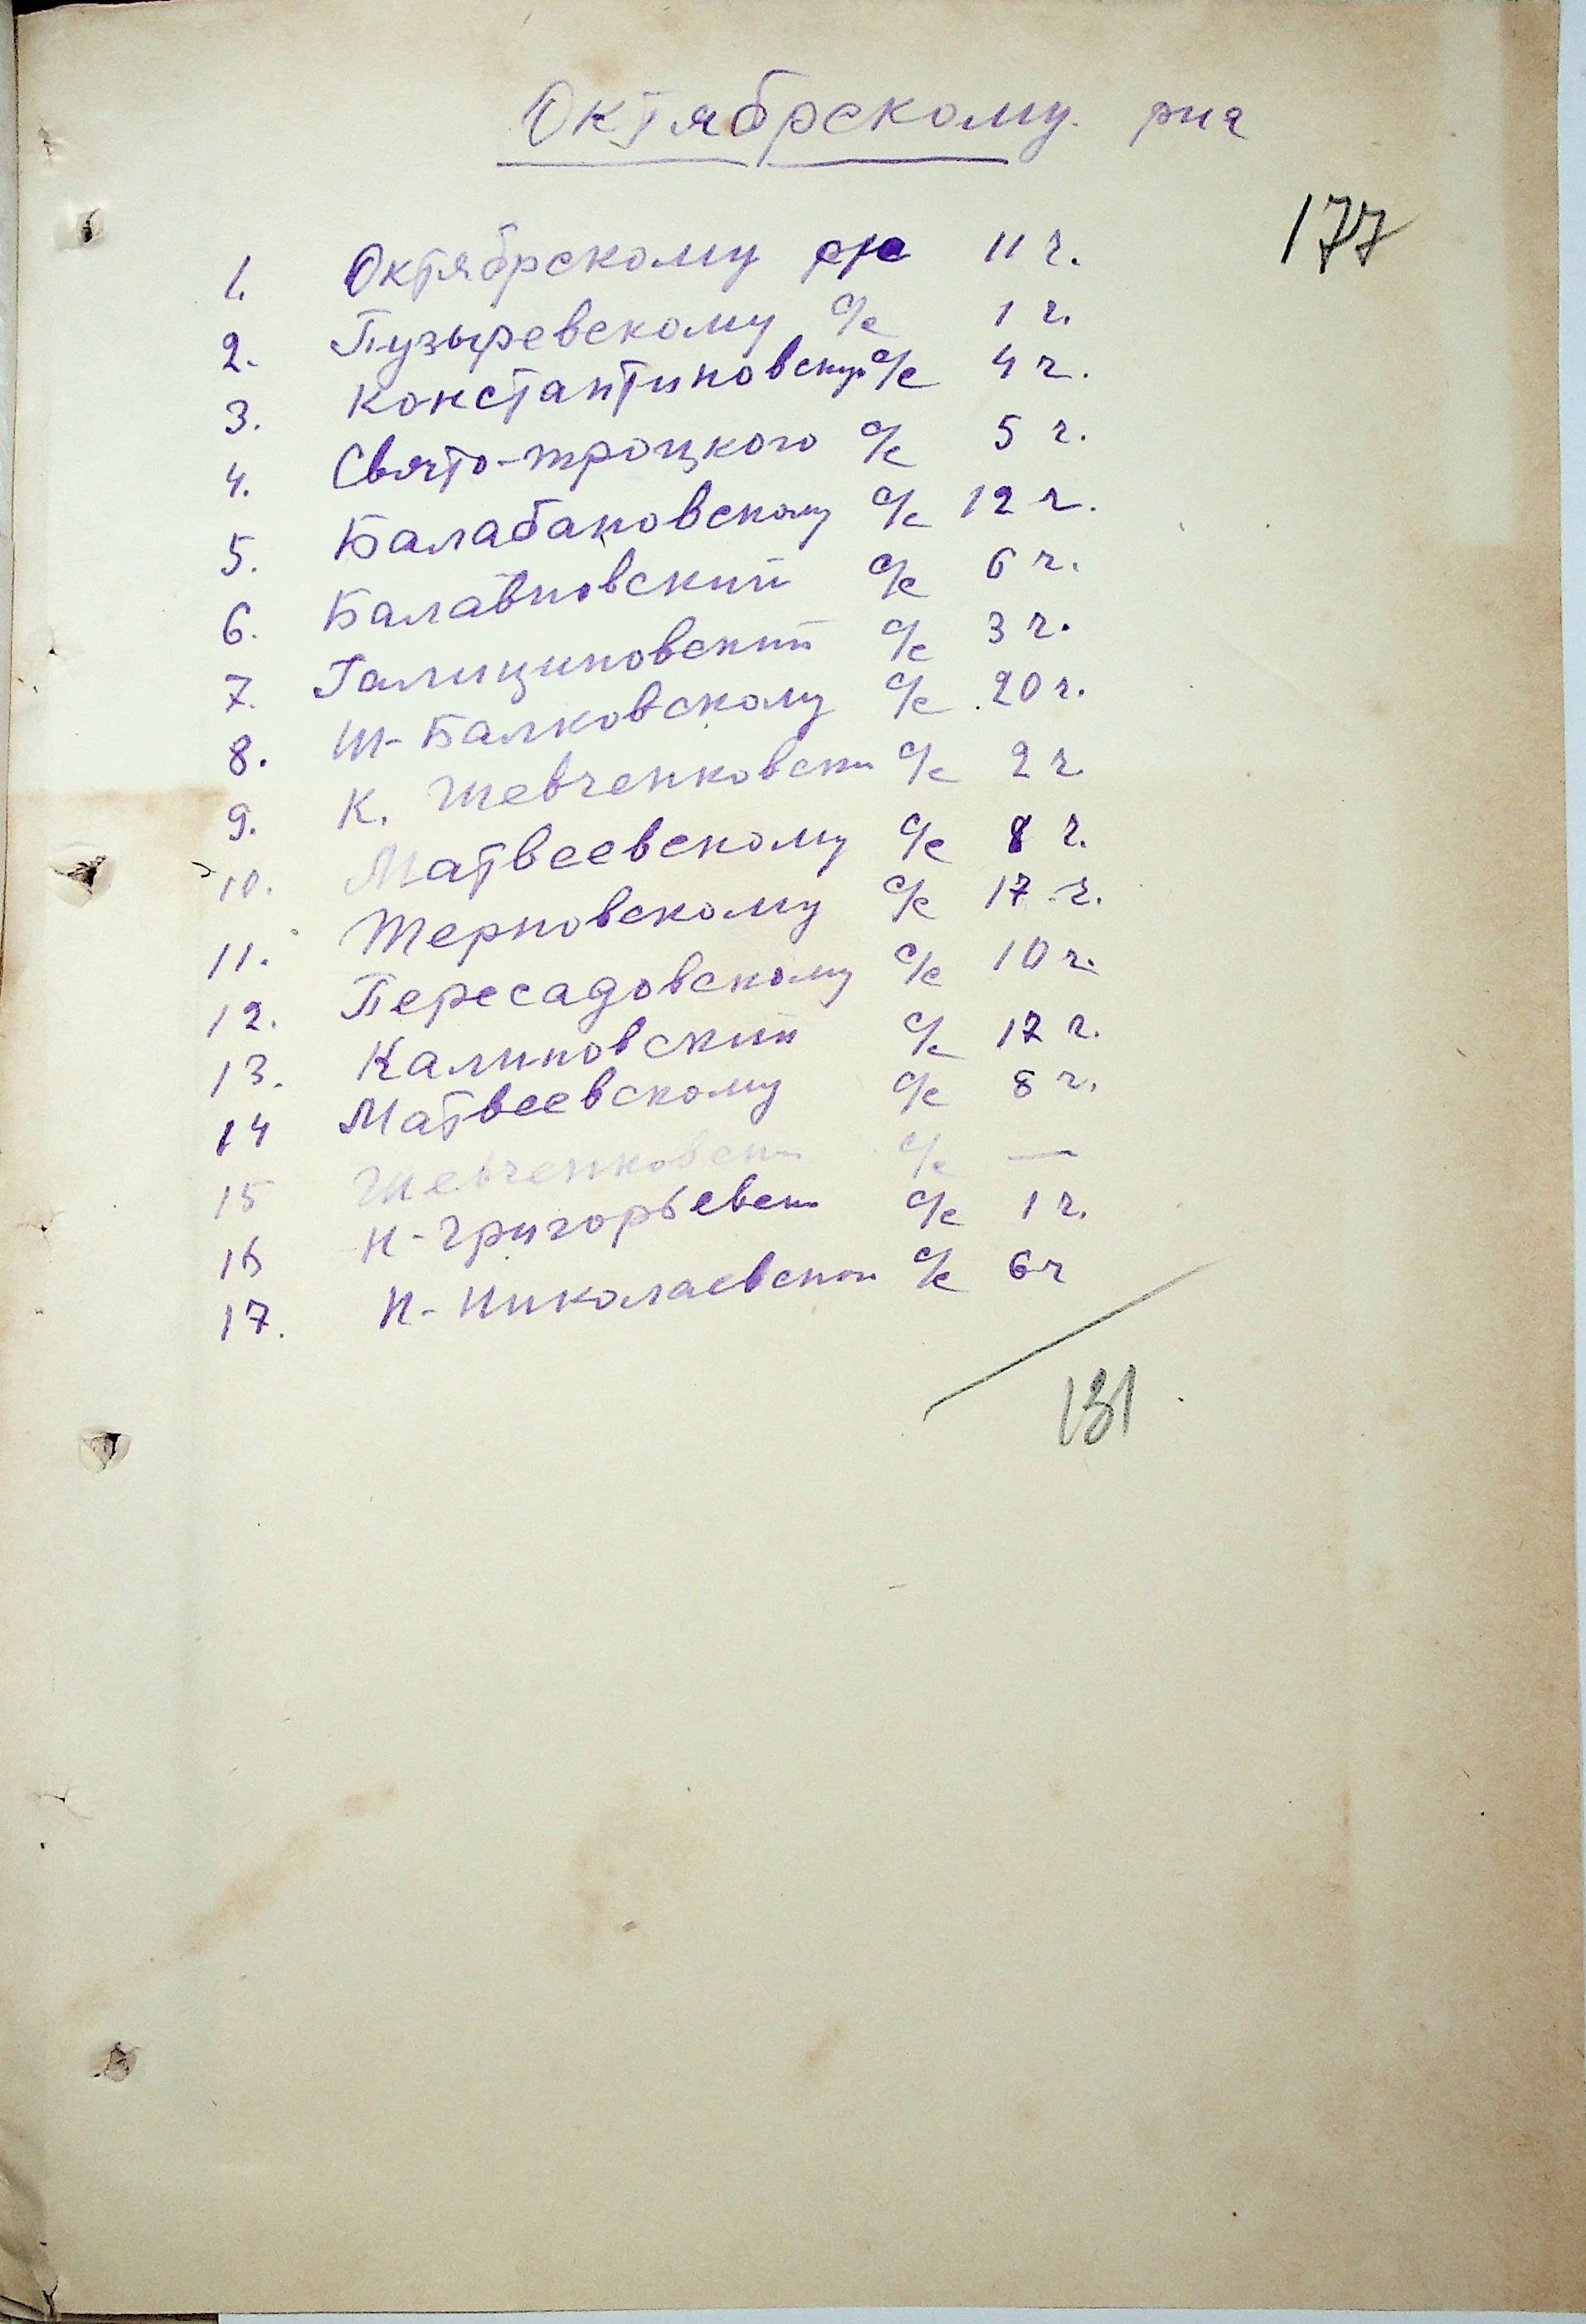 Октябрскому рна
177
1. Октябрскому с/с 11 ч.
2. Пузыревскому с/с 1 ч.
3. Константиновску с/с 4 ч.
4. Свято-троцкого с/с 5 ч.
5. Балабановскому с/с 12 ч.
6. Балавновский с/с 6 ч.
7. Галициновский с/с 3 ч.
8. Ш-Балковскому с/с 20 ч.
9. К. Шевченковски с/с 2 ч.
10. Матвеевскому с/с 8 ч.
11. Терновскому с/с 17 ч.
12. Пересадовскому с/с 10 ч.
13. Калиновский с/с 17 ч.
14 Матвеевскому с/с 8 ч.
15 Шевченковски с/с —
16 Н-Григорьевск с/с 1 ч.
17. Н-Николаевской с/с 6 ч
131